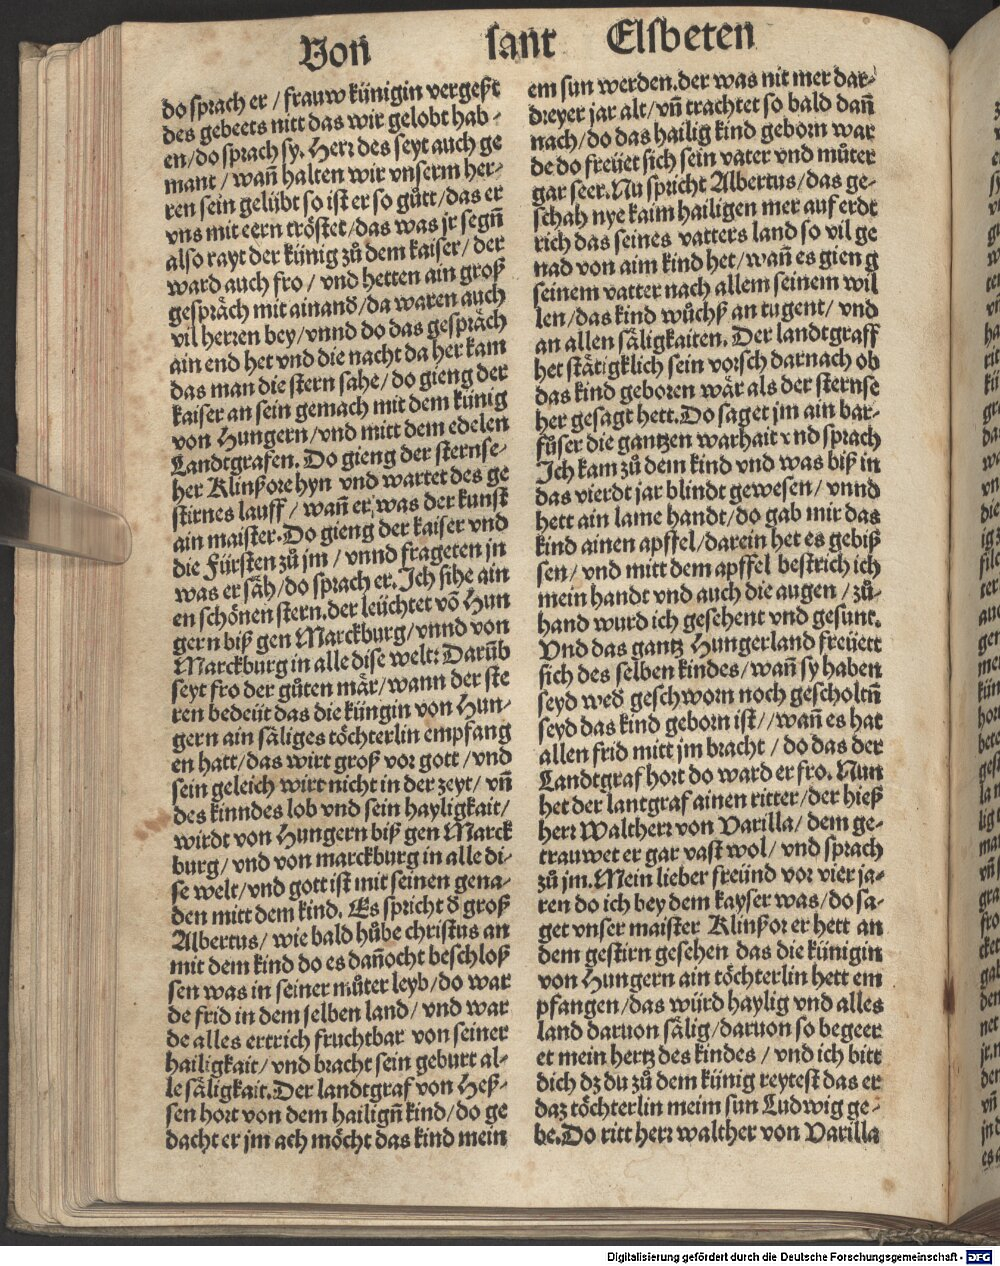 Von sant Elsbeten
do sprach er / frauw künigin vergeßt
des gebeets nitt das wir gelobt hab-
en / do sprach sy. Herr des seyt auch ge
mant / wañ halten wir vnserm her-
ren sein gelübt so ist er so gůtt / das er
vns mit eern tröstet / das was jr segñ
also rayt der künig zů dem kaiser / der
ward auch fro / vnd hetten ain groß
gespräch mit ainand / da waren auch
vil herren bey / vnnd do das gespräch
ain end het vnd die nacht da her kam
das man die stern sahe / do gieng der
kaiser an sein gemach mit dem künig
von Hungern / vnd mitt dem edelen
Landtgrafen. Do gieng der sternse-
her Klinßore hyn vnd wartet des ge
stirnes lauff / wañ er was der kunst
ain maister. Do gieng der kaiser vnd
die Fürsten zů jm / vnnd frageten jn
was er säh / do sprach er. Ich sihe ain
en schönen stern. der leüchtet võ Hun
gern biß gen Marckburg / vnnd von
Marckburg in alle dise welt: Darũb
seyt fro der gůten mär / wann der ste
ren bedeüt das die küngin von Hun-
gern ain säliges töchterlin empfang
en hatt / das wirt groß vor gott / vnd
sein geleich wirt nicht in der zeyt / vñ
des kinndes lob vnd sein hayligkait /
wirdt von Hungern biß gen Marck
burg / vnd von marckburg in alle di-
se welt / vnd gott ist mit seinen gena-
den mitt dem kind. Es spricht d̕ groß
Albertus / wie bald hůbe christus an
mit dem kind do es dañocht beschloß
sen was in seiner můter leyb / do war
de frid in dem selben land / vnd war
de alles ertrich fruchtbar von seiner
hailigkait / vnd bracht sein geburt al-
le säligkait. Der landtgraf von Heß-
sen hort von dem hailigñ kind / do ge
dacht er jm ach möcht das kind mein
em sun werden. der was nit mer dar-
dreyer jar alt / vñ trachtet so bald dañ
nach / do das hailig kind geborn war
de do freüet sich sein vater vnd můter
gar seer. Nu spricht Albertus / das ge-
schah nye kaim hailigen mer auf erdt
rich das seines vatters land so vil ge
nad von aim kind het / wañ es gieng
seinem vatter nach allem seinem wil
len / das kind wůchß an tugent / vnd
an allen säligkaiten. Der landtgraff
het stätigklich sein vorsch darnach ob
das kind geboren wär als der sternse
her gesagt hett. Do saget jm ain bar-
fůser die gantzen warhait vnd sprach
Ich kam zů dem kind vnd was biß in
das vierdt jar blindt gewesen / vnnd
hett ain lame handt / do gab mir das
kind ainen apffel / darein het es gebiß
sen / vnd mitt dem apffel bestrich ich
mein handt vnd auch die augen / zů-
hand wurd ich gesehent vnd gesunt.
Vnd das gantz Hungerland freüett
sich des selben kindes / wañ sy haben
seyd wed̕ geschworn noch gescholtñ
seyd das kind geborn ist / / wañ es hat
allen frid mitt jm bracht / do das der
Landtgraf hort do ward er fro. Nun
het der lantgraf ainen ritter / der hieß
herr Waltherr von Varilla / dem ge-
trauwet er gar vast wol / vnd sprach
zů jm. Mein lieber freünd vor vier ja-
ren do ich bey dem kayser was / do sa-
get vnser maister Klinßor er hett an
dem gestirn gesehen das die künigin
von Hungern ain töchterlin hett em
pfangen / das würd haylig vnd alles
land daruon sälig / daruon so begeer
et mein hertz des kindes / vnd ich bitt
dich dz du zů dem künig reytest das er
daz töchterlin meim sun Ludwig ge-
be. Do ritt herr walther von Varilla
Digitalisierung gefördert durch die Deutsche Forschungsgemeinschaft - DFG